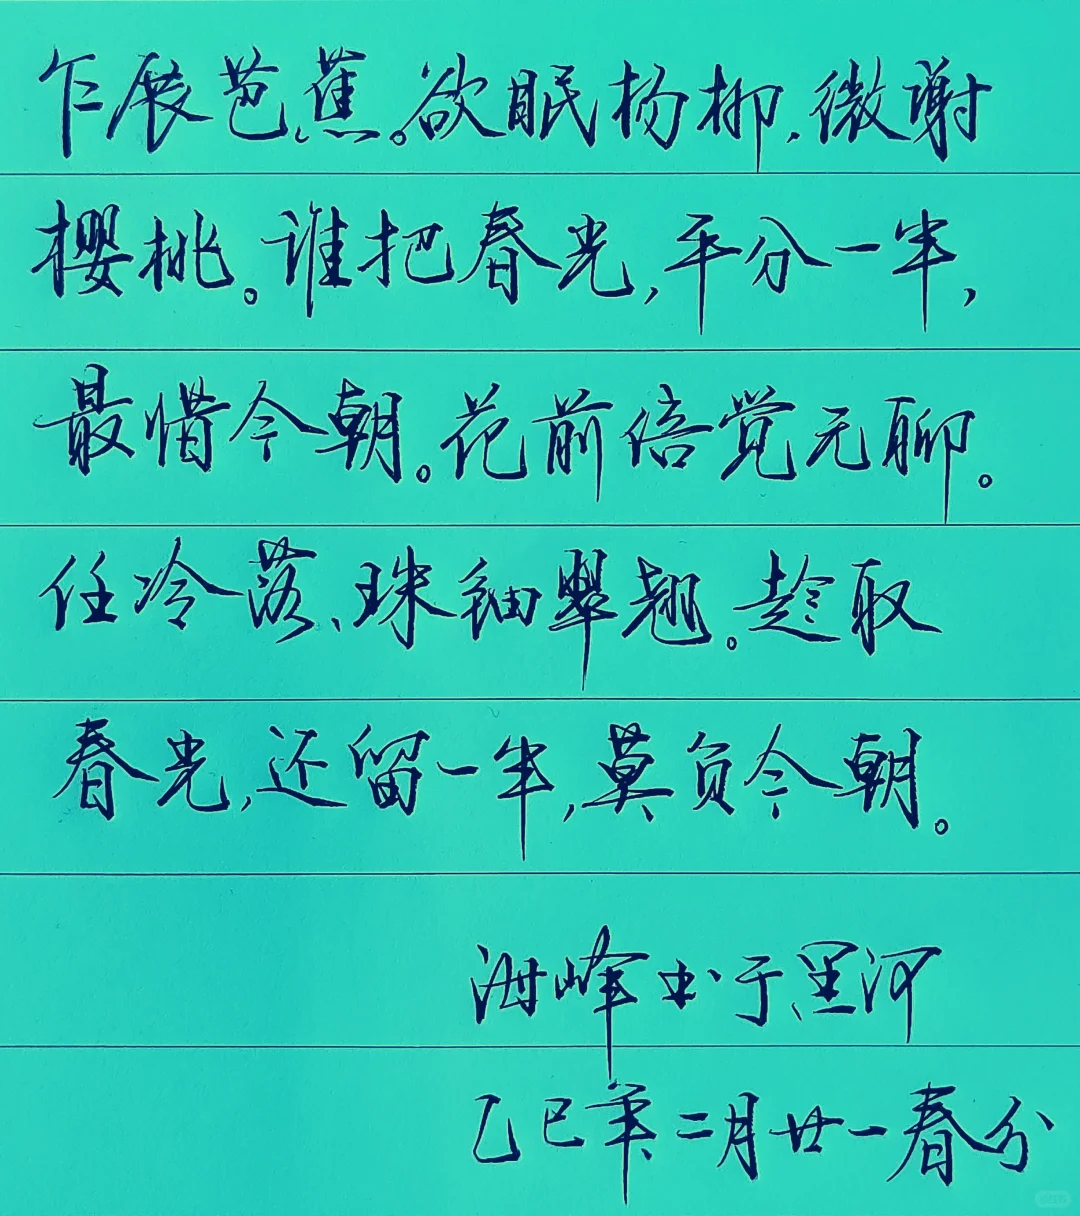 乍展芭蕉。欲眠杨柳，微谢
樱桃。谁把春光，平分一半，
最惜今朝。花前倍觉无聊。
任冷落、珠钿翠翘。趁取
春光，还留一半，莫负今朝。
海峰书于黑河
乙巳年二月廿一春分